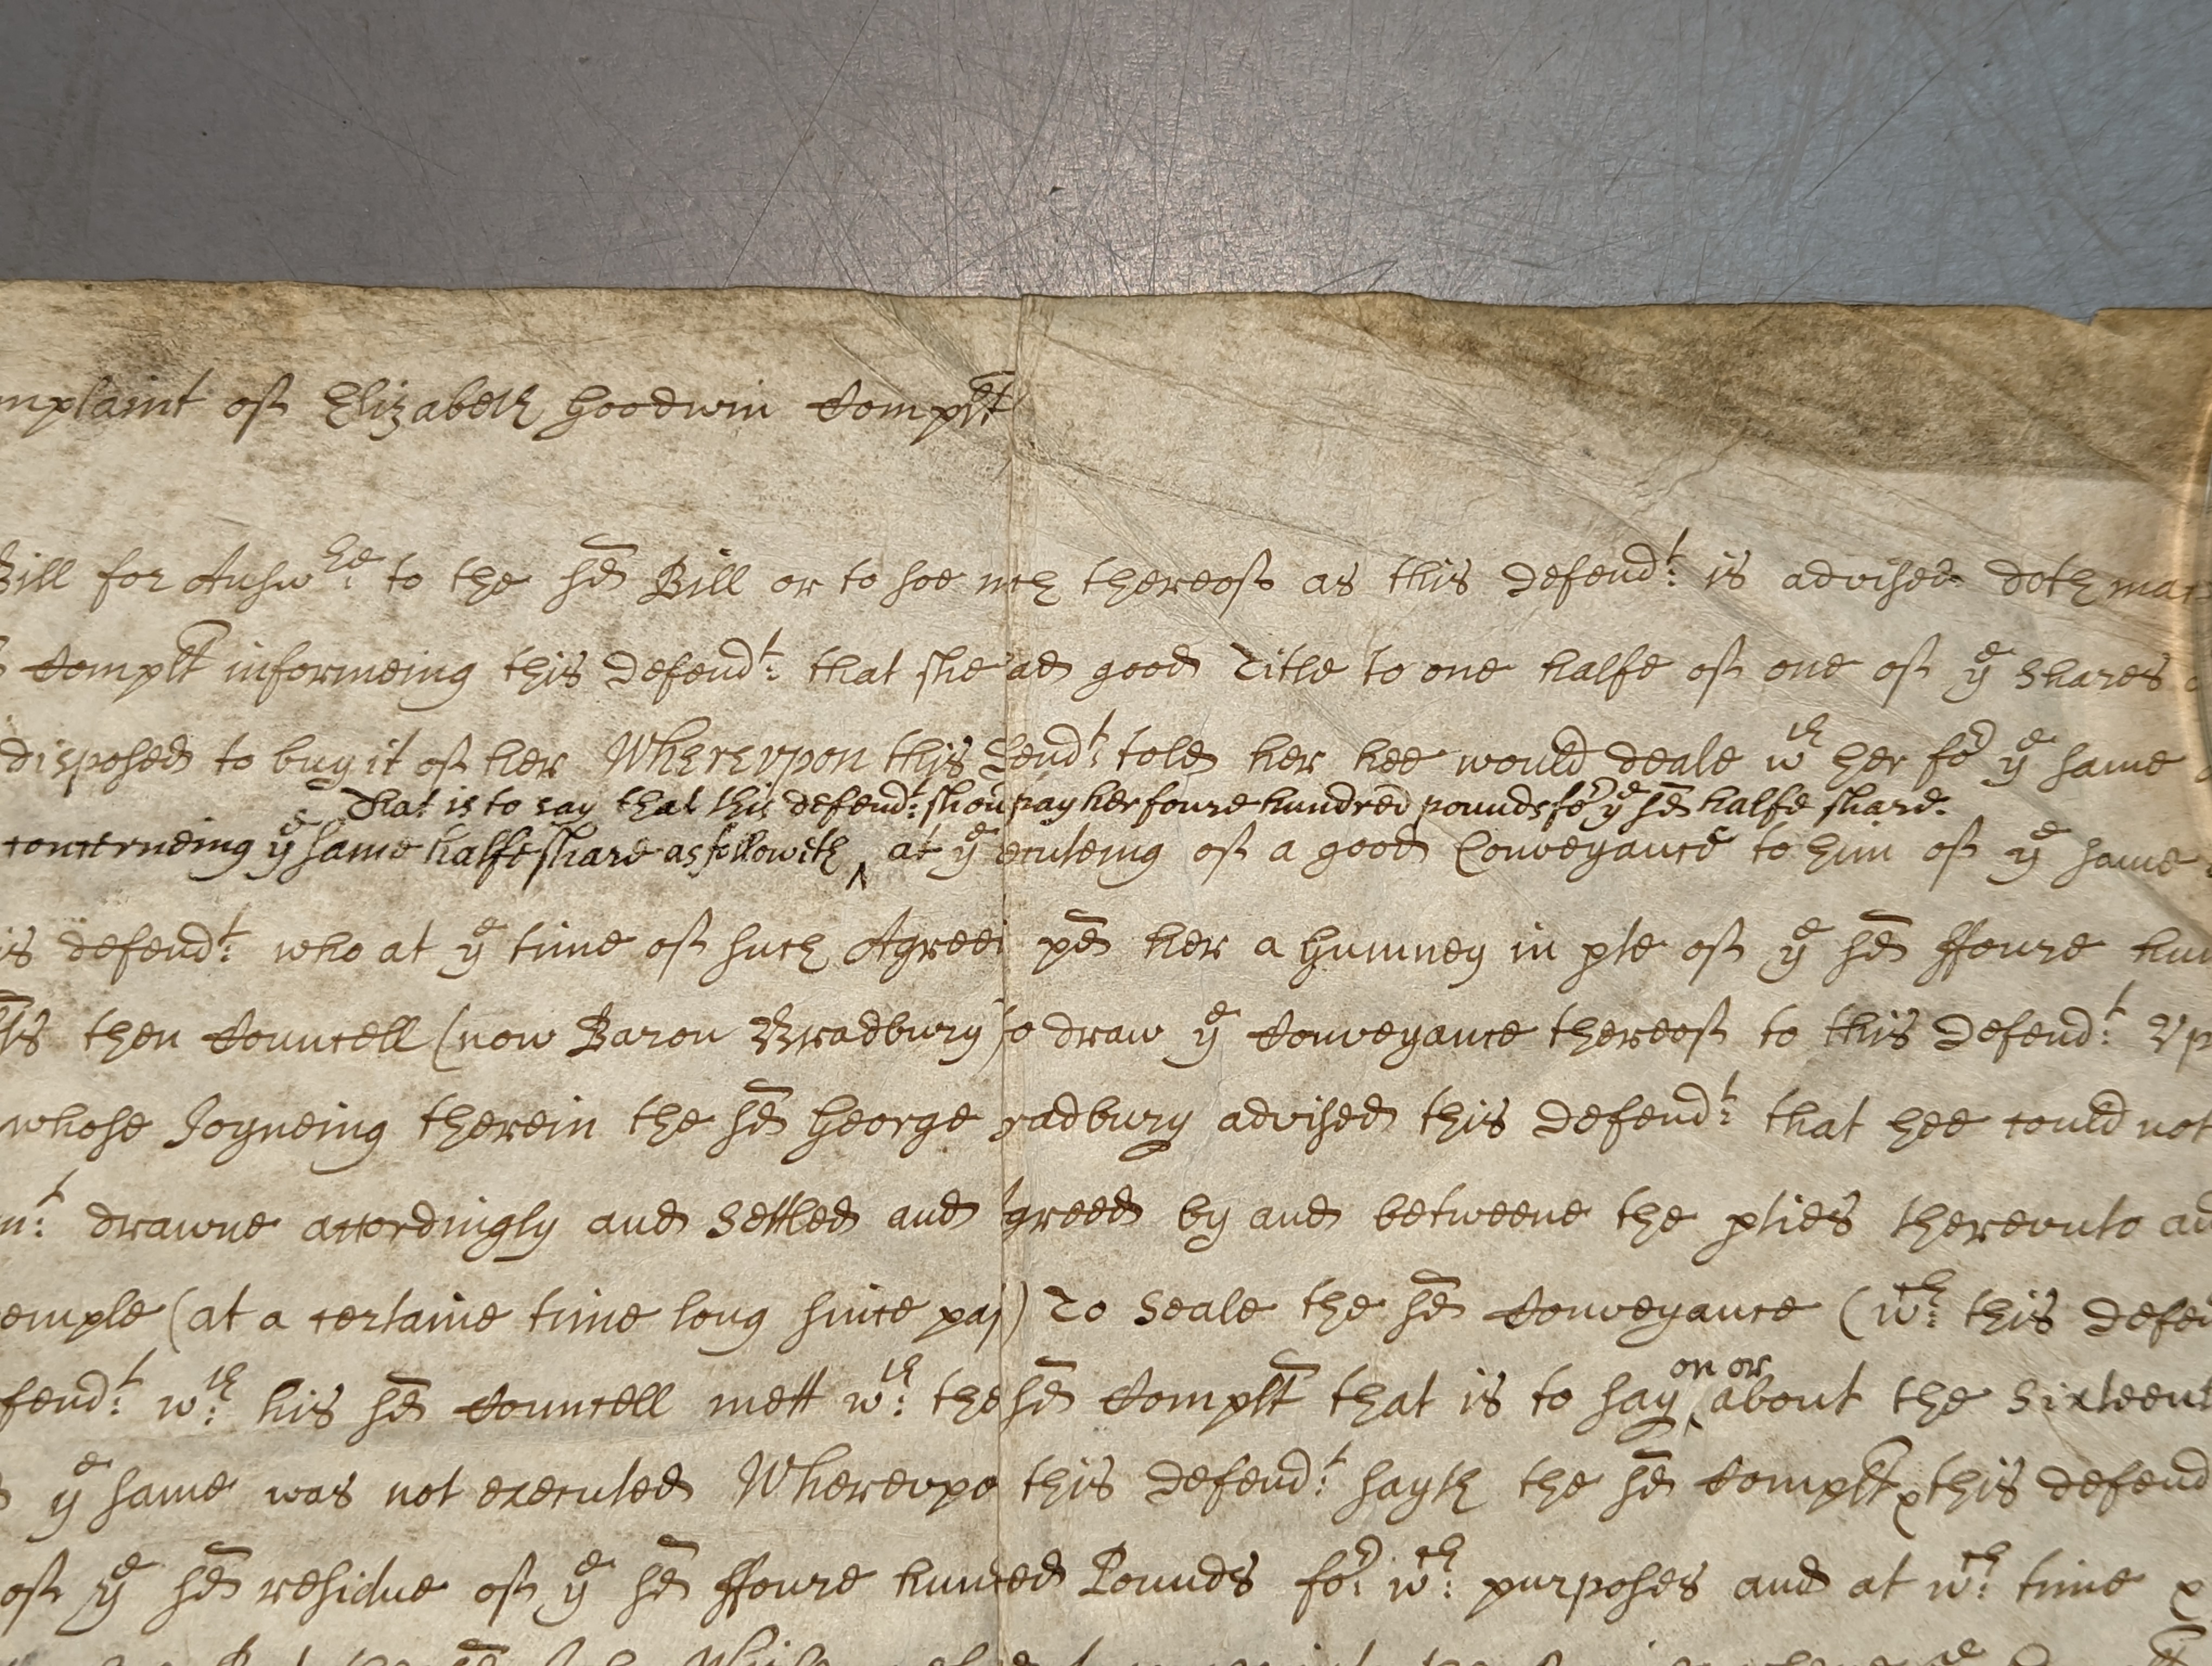 mplaint of Elizabeth Goodwin Complt
Bill for Answre to the sd Bill or to soe mch thereof as this Defendt: is advised doth mat
Complt informeing this Defendt: that she ad good Title to one halfe of one of ye Shares
disposed to buy it of her Wherevpon this fendt: told her hee would deale wth her for ye same
That is to say that this defendt: shou pay her foure hundred pounds for ye sd halfe share.
concerneing ye same halfe share as followeth ‸ at ye ecuteing of a good Conveyance to him of ye same
is defendt: who at ye time of such Agreei pd her a Guinney in pte of ye sd ffoure hun
ts then Councell (now Baron Bradbury) o draw ye Conveyance thereof to this Defendt: Vp
whose Joyneing therein the sd George radbury advised this Defendt: that hee could not
nt: drawne accordingly and Settled and greed by and betweene the pties therevnto ad
emple (at a certaine time long since pas) To Seale the sd Conveyance (wch: this Defen
fendt: wth: his sd Councell mett wth: the sd Complt that is to say ‸ on or about the Sixteent
ye same was not executed Wherevpo this Defendt: sayth the sd Complt this defend
of ye sd residue of ye sd ffoure hundred Pounds for: wch: purposes and at wch: time